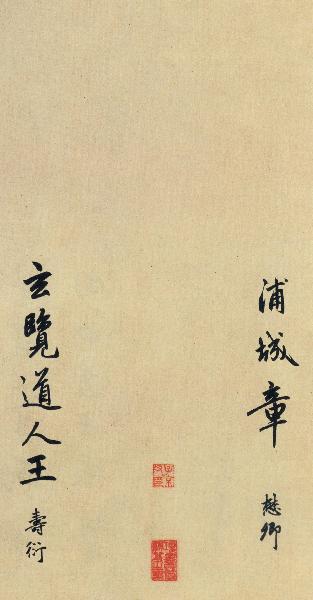 浦城章懋卿
玄覽道人王壽衍